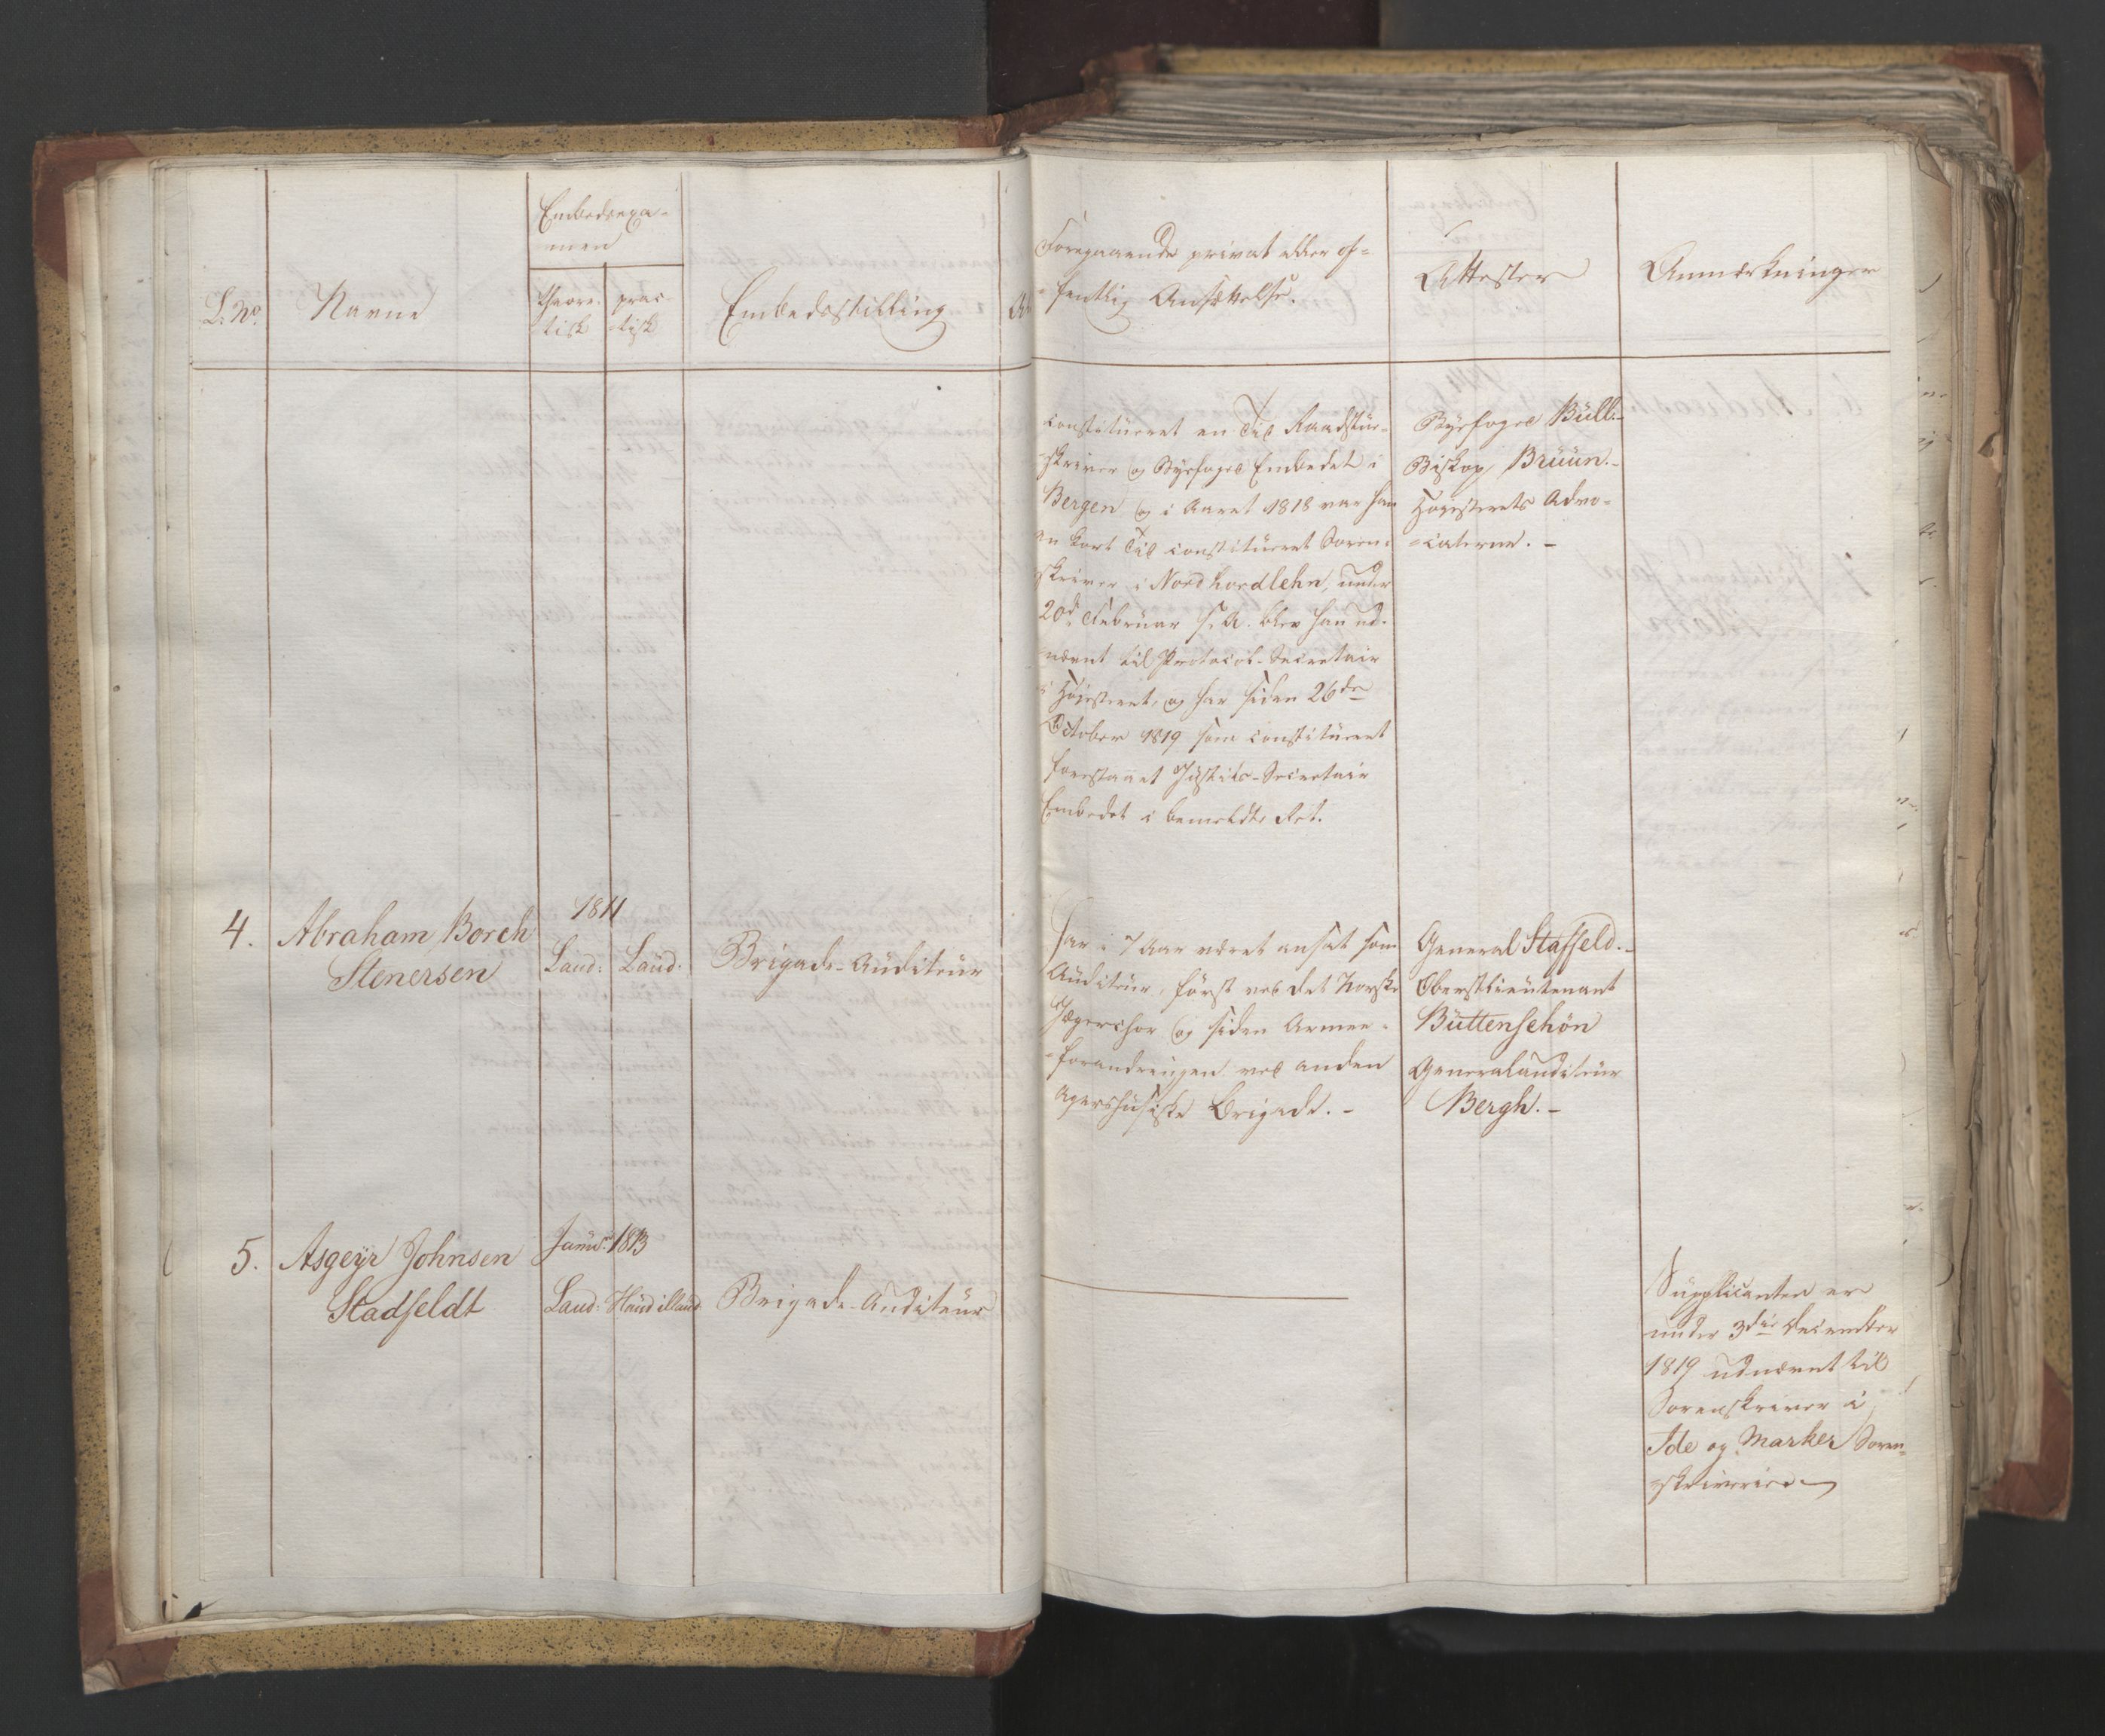 L. No.
Navne
Embedsexa-
men
theore-
tisk
prac-
tisk
Embedsstilling
Foregaaende privat eller of-
fentlig Ansættelse.
Attester
Anmærkninger
constitueret en Tid Raadstue-
skriver og Byefoged Embedet i
Bergen og i Aaret 1818 var han
en kort Tid constitueret Soren-
skriver i Nordhordlehn, under
20de Februar s. A. blev han ud-
nævnt til Protocol-Secretair
i Høiesteret, og har siden 26de
October 1819 som constitueret
forestaaet Justits-Secretair
Embedet i bemeldte Ret.
Byefoged Büll.-
Biskop Brüün.-
Høiesterets Advo-
-caterne.-
4.
Abraham Borch
Stenersen
1811
Laud:
Laud.
Brigade-Auditeur
Har i 7 Aar været ansat som
Auditeur, først ved det Norske
Jægerchor og siden Armee-
-forandringen ved anden
Agershusiske Brigade.-
General Staffeld.-
Oberstlieutenant
Büttenschön
Generalauditeur
Bergh.-
5.
Asgeyr Johnsen
Stadfeldt
Janu: 1813
Laud:
Haud illaud.
Brigade-Auditeur
Supplicanten er
under 3die December
1819 udnævnt til
Sorenskriver i
Ide og Marker Soren-
-skriverie.-